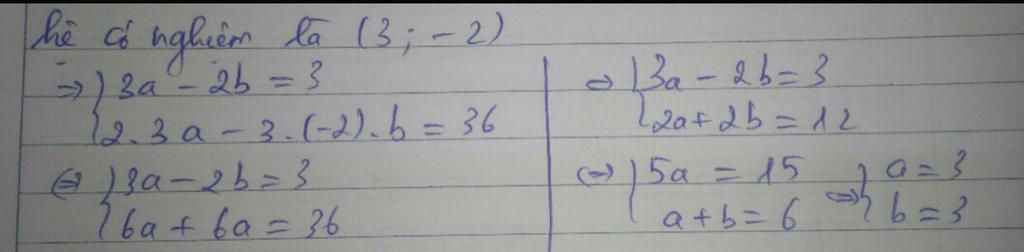 hệ có nghiệm là (3; -2)
=> { 3a - 2b = 3
2.3a - 3.(-2).b = 36
<=> { 3a - 2b = 3
6a + 6a = 36
<=> { 3a - 2b = 3
2a + 2b = 12
<=> { 5a = 15
a + b = 6
<=> { a = 3
b = 3